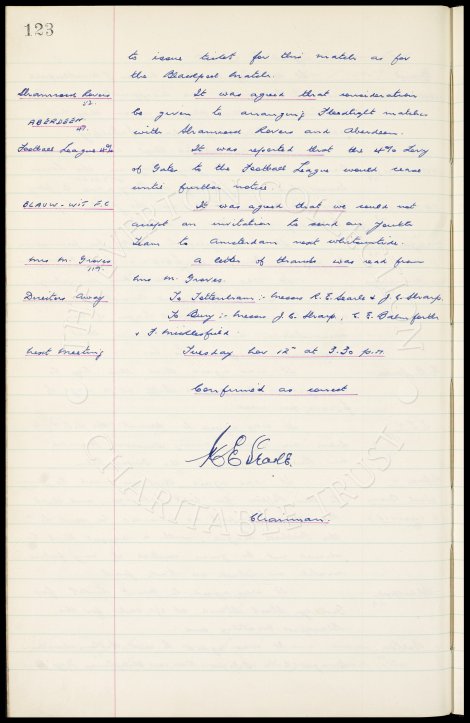 123
to issue ticket for this match as for
the Blackpool match.
Shamrock Rovers
v.
It was agreed that consideration
be given to arranging Floodlight matches
ABERDEEN
v.
with Shamrock Rovers and Aberdeen.
Football League 4%
It was reported that the 4% Levy
of Gates to the Football League would cease
until further notice.
BLAUW-WIT F.C
It was agreed that we could not
accept an invitation to send our youth
team to Amsterdam next Whitsuntide.
Mrs M. Groves
A letter of thanks was read from
Mrs M. Groves.
Directors Away
To Tottenham :- Messrs R.E. Searle & J.C. Sharp.
To Bury :- Messrs J.C. Sharp, C.E. Balmforth
& F. Micklesfield.
Next Meeting
Tuesday Nov 12th at 3.30 p.m.
Confirmed as correct
R E Searle.
Chairman.
CHARITABLE TRUST